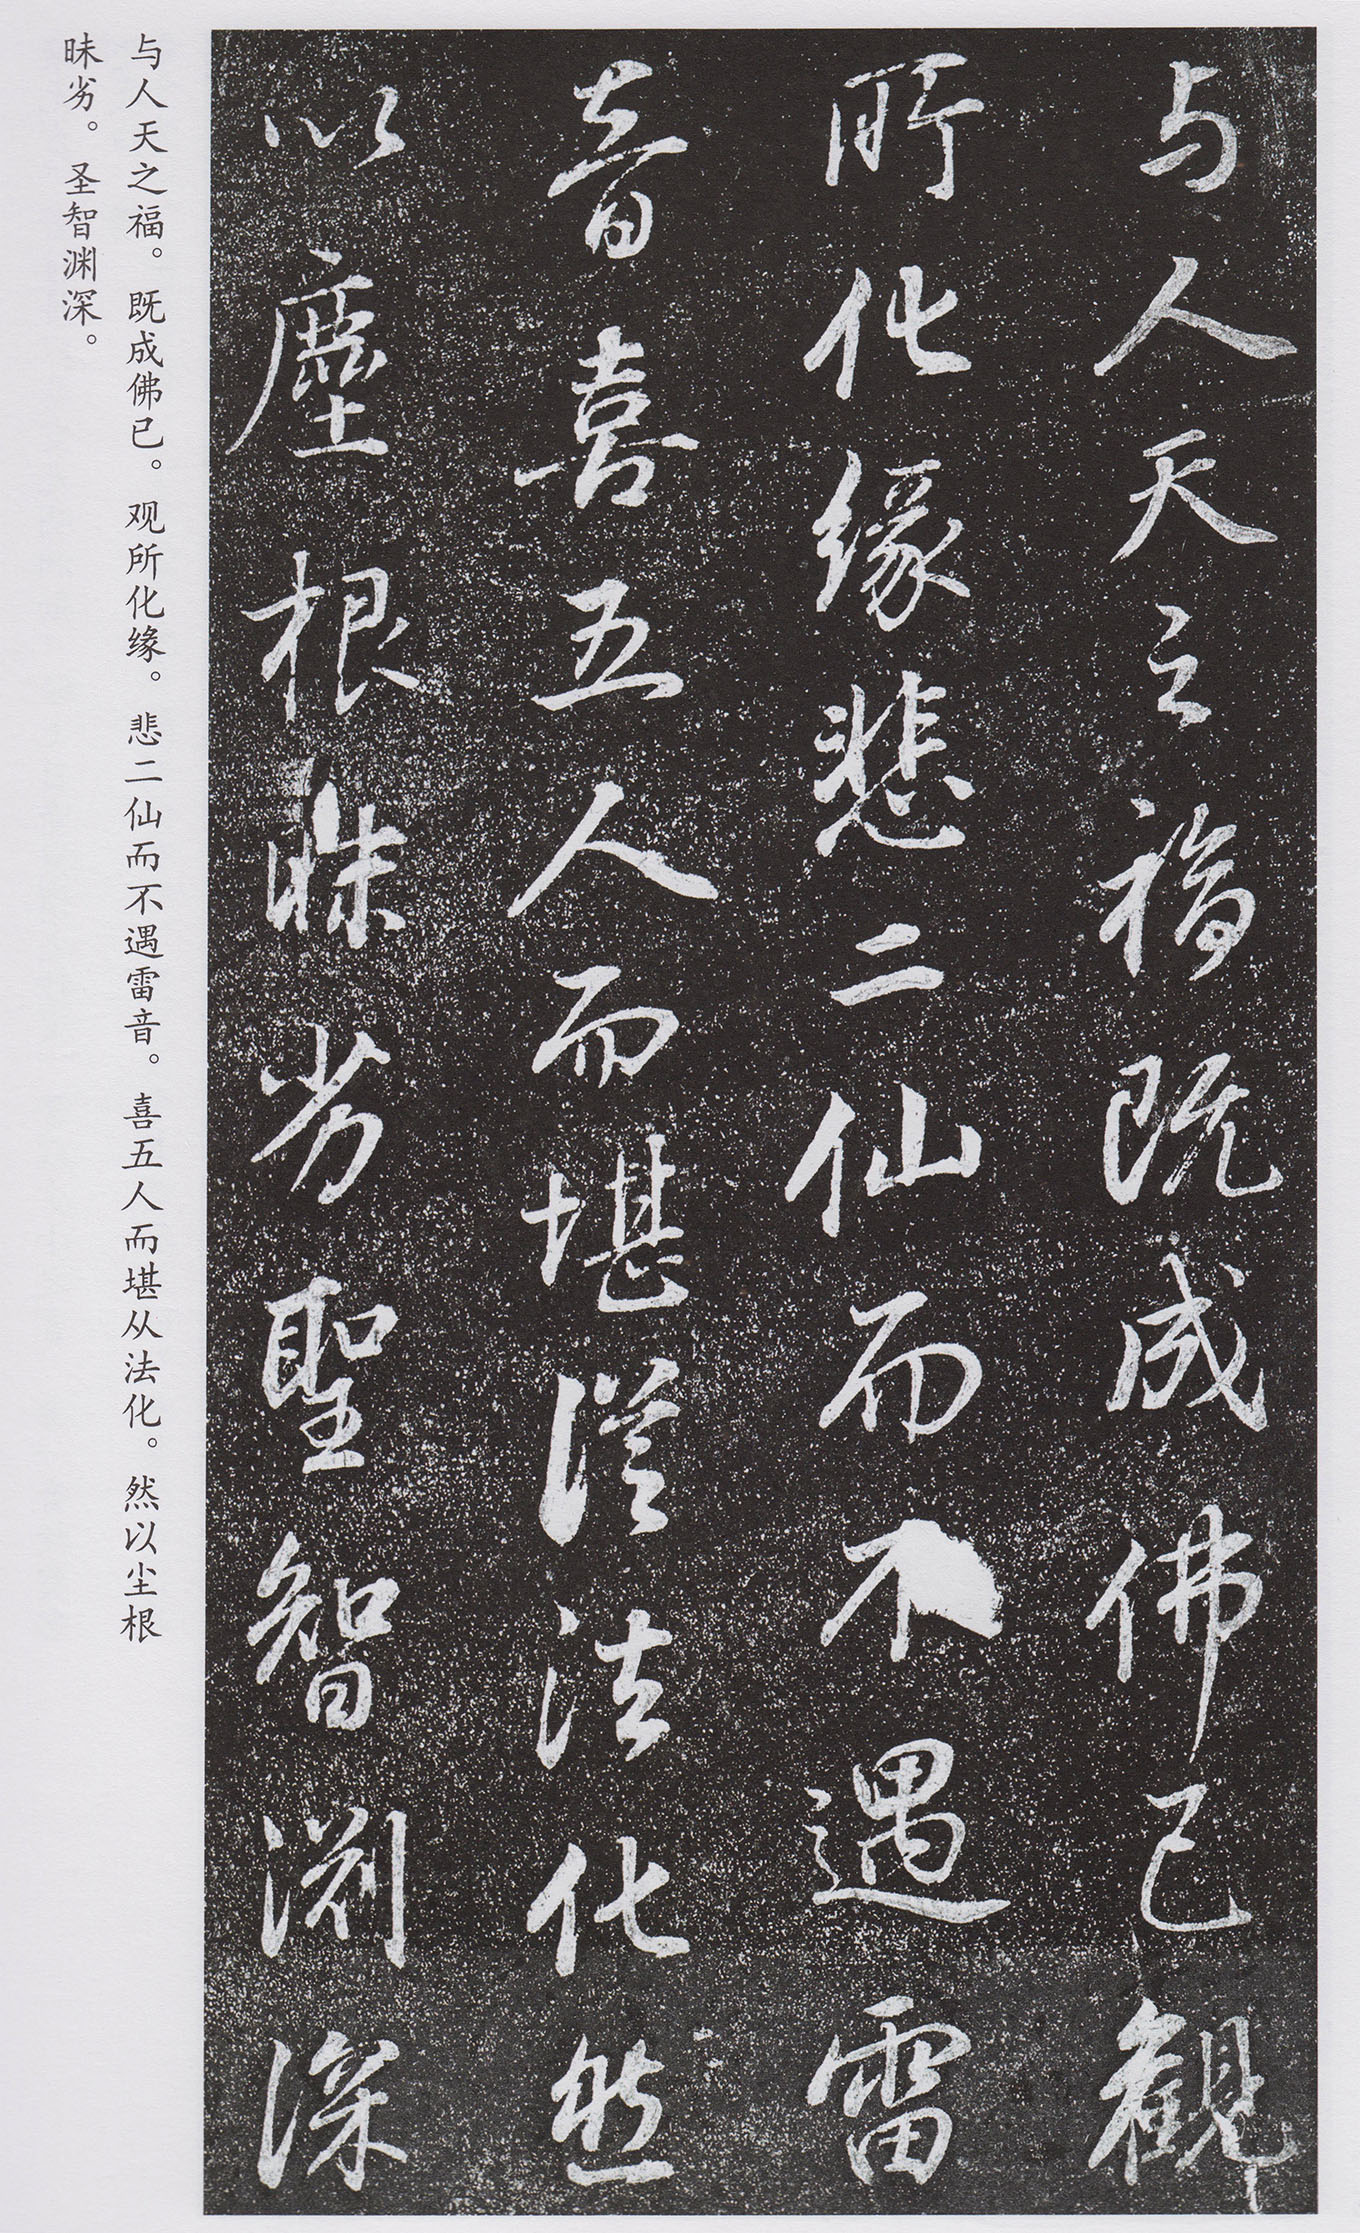 与人天之福既成佛已觀
所化緣悲二仙而不遇雷
音喜五人而堪從法化然
以塵根昧劣聖智渊深
与人天之福。既成佛已。观所化缘。悲二仙而不遇雷音。喜五人而堪从法化。然以尘根
昧劣。圣智渊深。